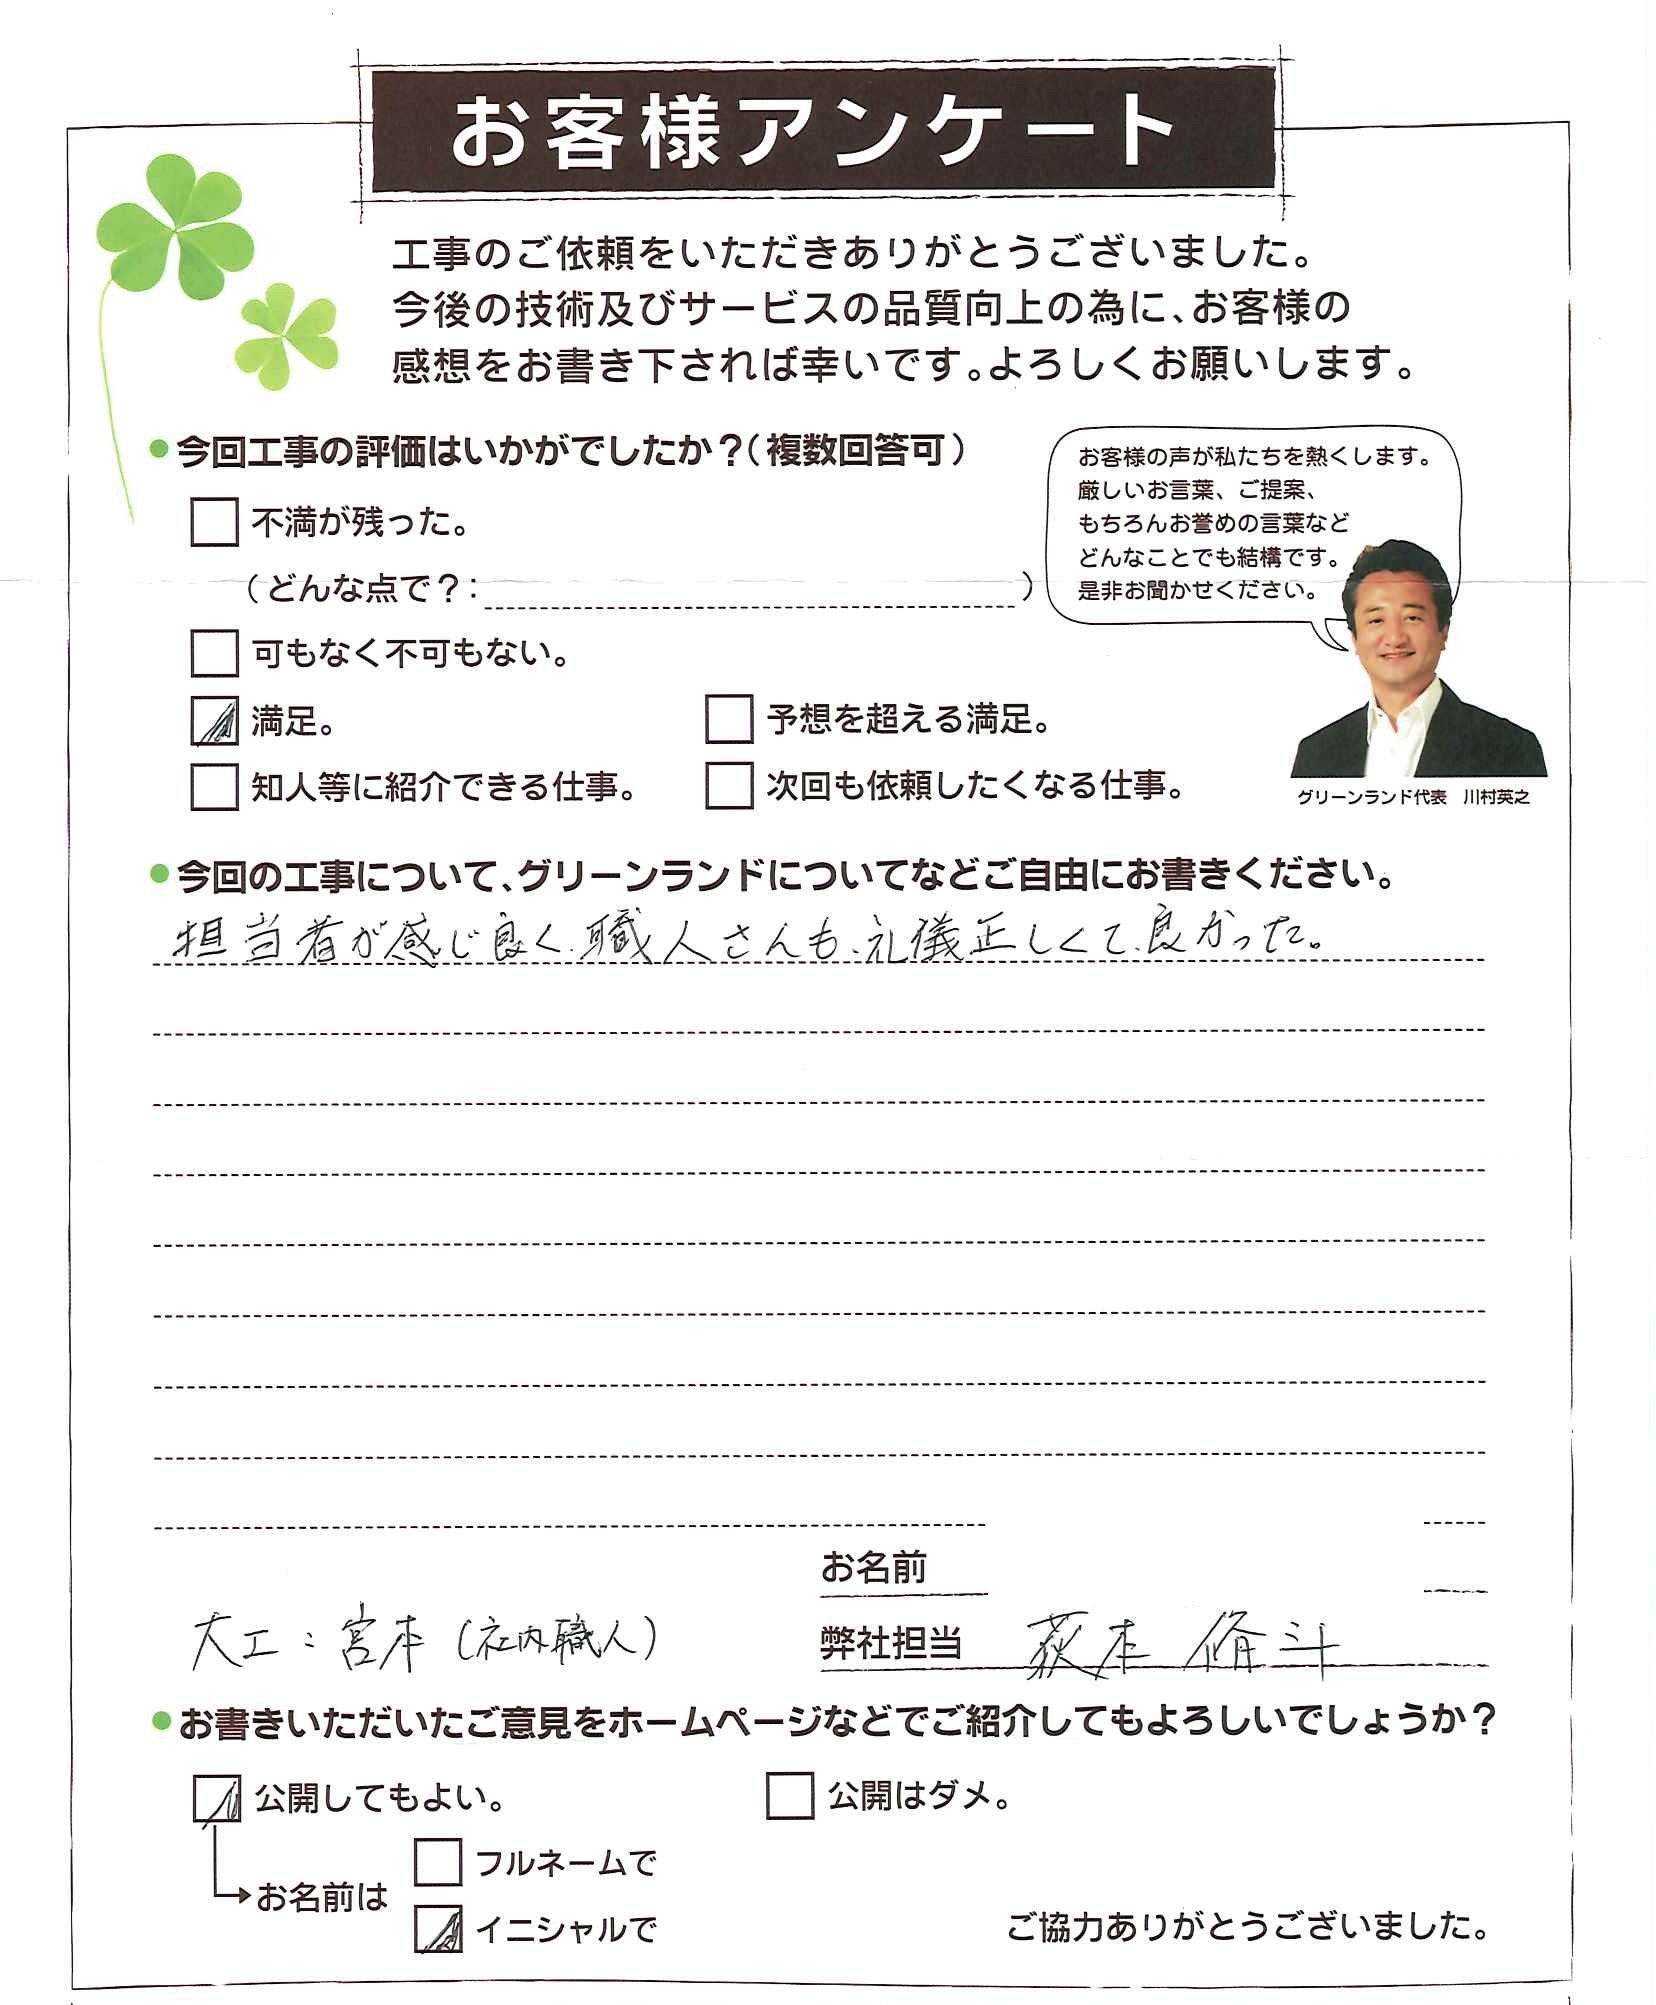 お客様アンケート
工事のご依頼をいただきありがとうございました。
今後の技術及びサービスの品質向上の為に、お客様の
感想をお書き下されば幸いです。よろしくお願いします。
●今回工事の評価はいかがでしたか？(複数回答可)
不満が残った。
(どんな点で？: )
可もなく不可もない。
満足。
予想を超える満足。
知人等に紹介できる仕事。
次回も依頼したくなる仕事。
お客様の声が私たちを熱くします。
厳しいお言葉、ご提案、
もちろんお誉めの言葉など
どんなことでも結構です。
是非お聞かせください。
グリーンランド代表 川村英之
●今回の工事について、グリーンランドについてなどご自由にお書きください。
担当者が感じ良く、職人さんも、礼儀正しくて、良かった。
お名前
大工：宮本(社内職人)
弊社担当 荻本 脩斗
●お書きいただいたご意見をホームページなどでご紹介してもよろしいでしょうか？
公開してもよい。
公開はダメ。
お名前は
フルネームで
イニシャルで
ご協力ありがとうございました。